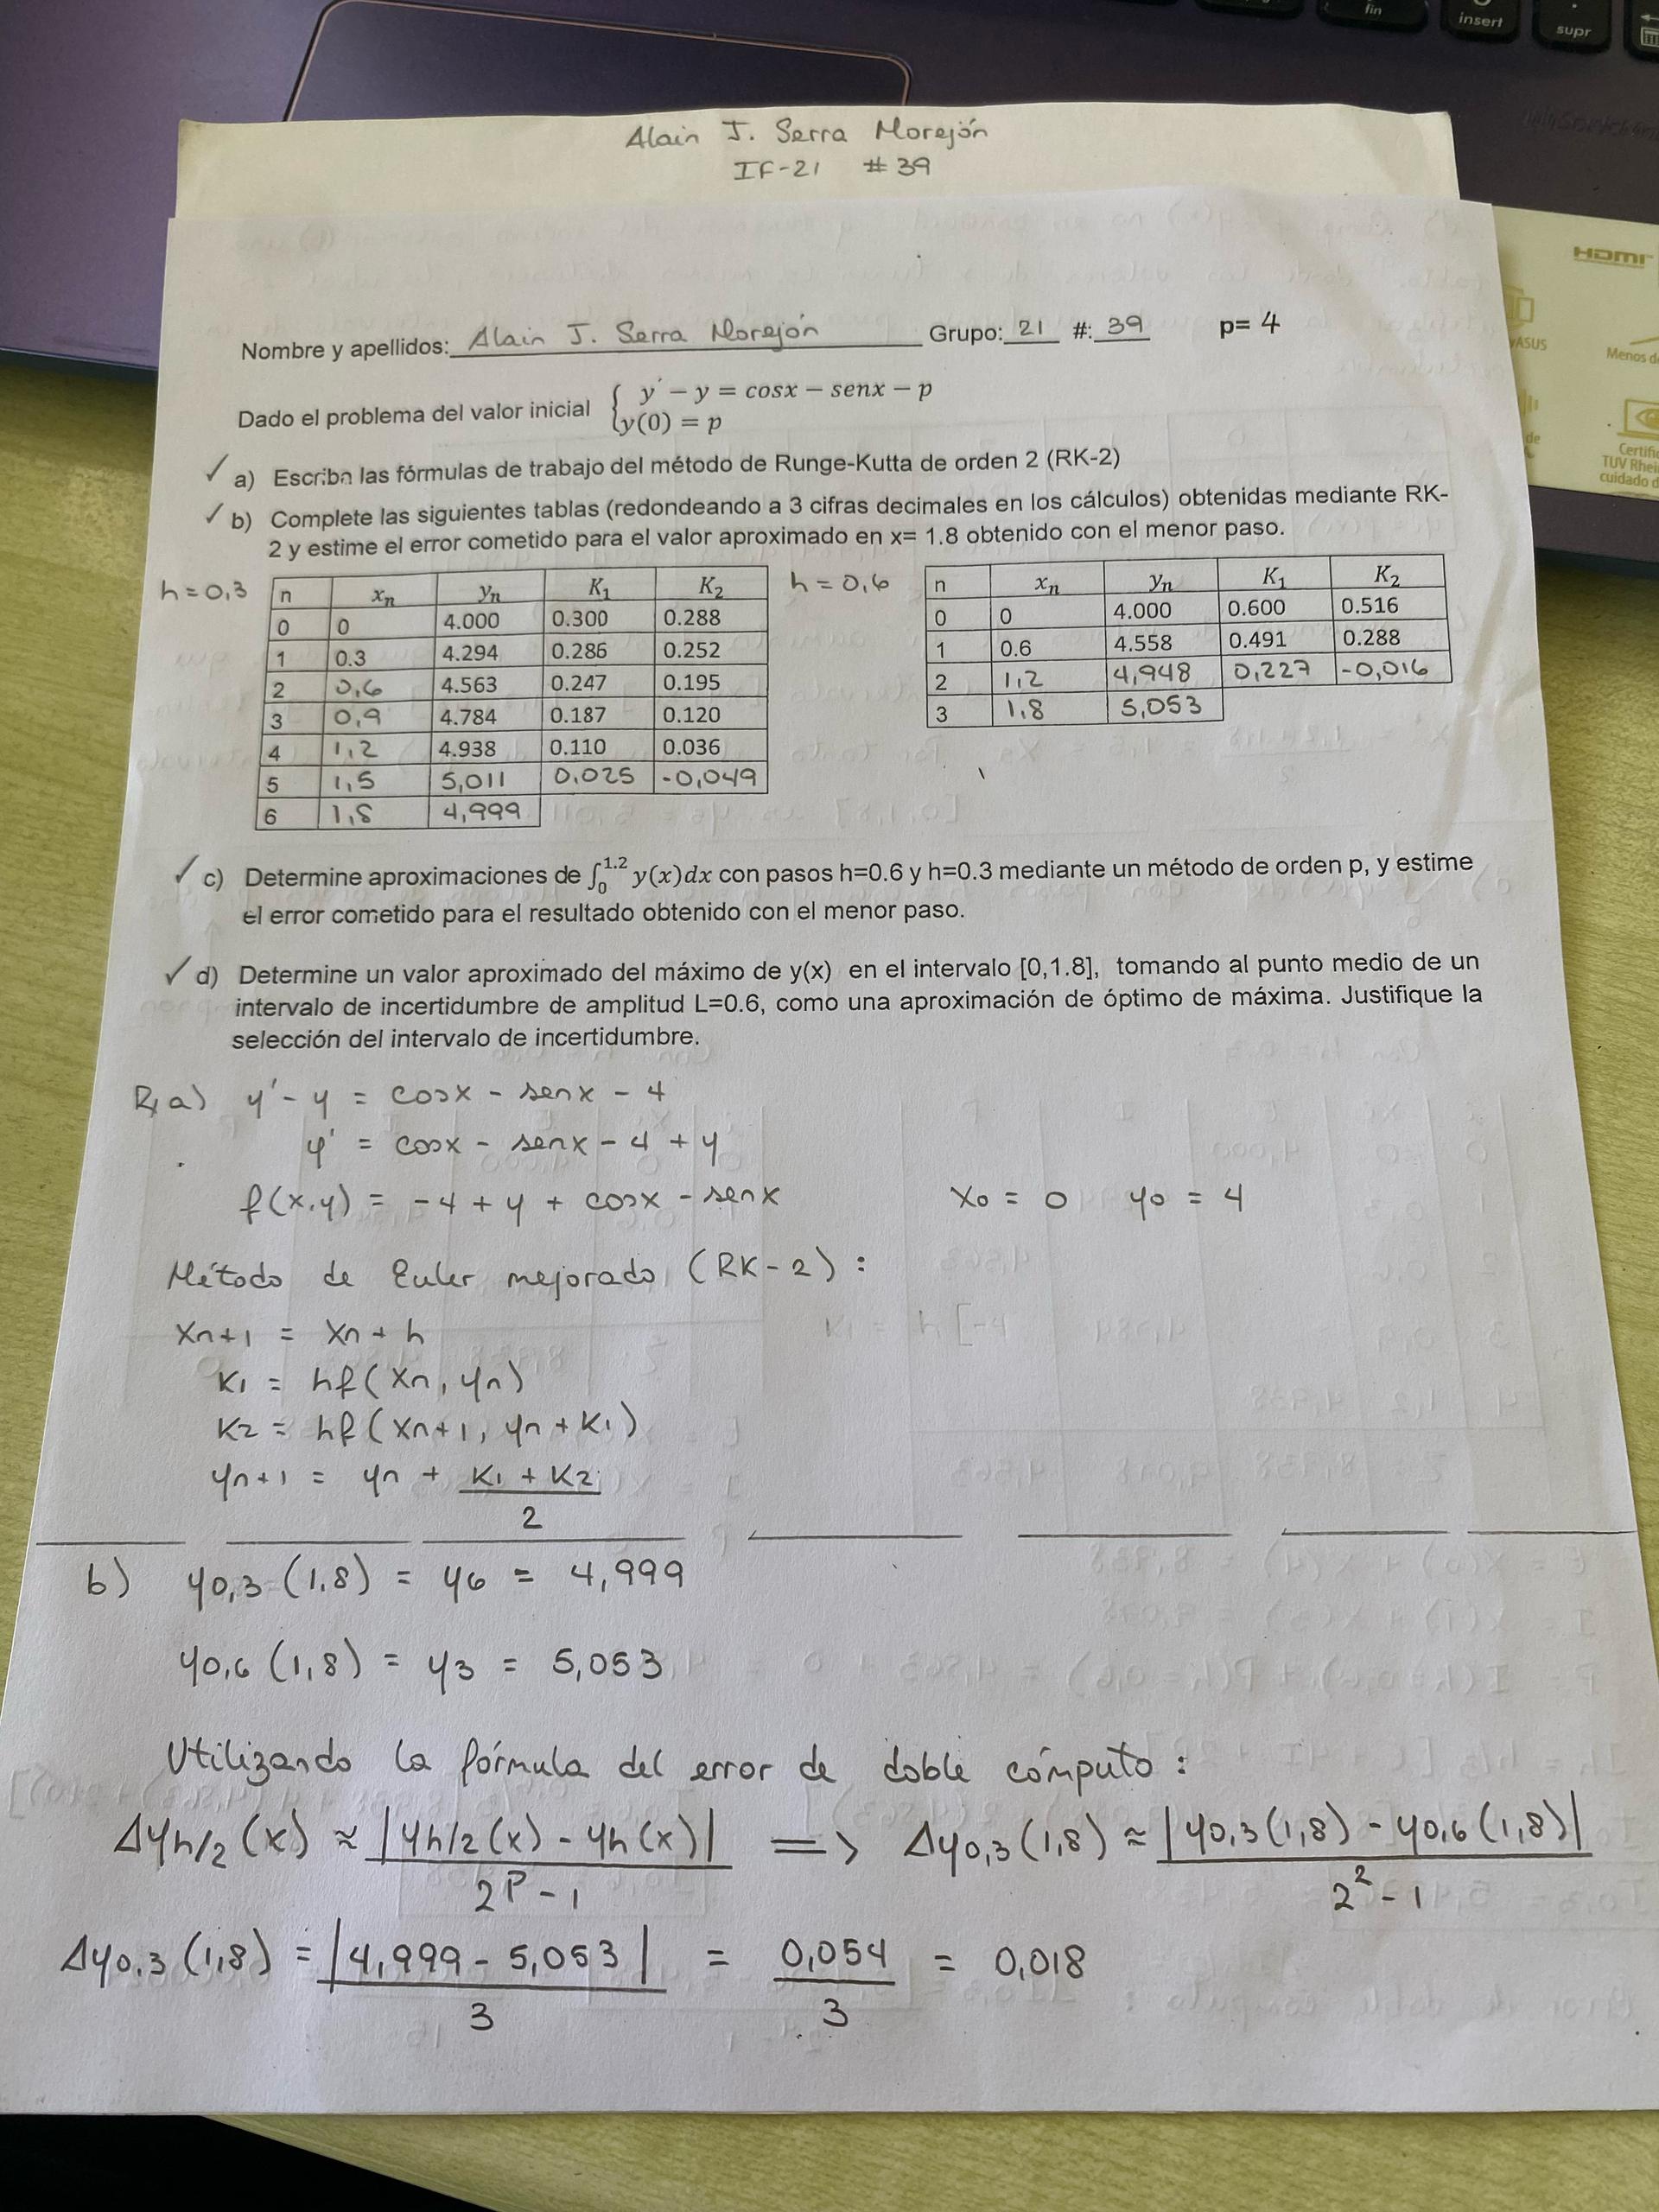 fin
insert
supr
Alain J. Serra Morejón
IF-21 #39
HDMI
ASUS
Menos de
de
Certifi
TUV Rhei
cuidado d
Nombre y apellidos: Alain J. Serra Morejón Grupo: 21 #: 39 p= 4
Dado el problema del valor inicial { y´ − y = cosx − senx − p
y(0) = p
✓ a) Escriba las fórmulas de trabajo del método de Runge-Kutta de orden 2 (RK-2)
✓ b) Complete las siguientes tablas (redondeando a 3 cifras decimales en los cálculos) obtenidas mediante RK-
2 y estime el error cometido para el valor aproximado en x= 1.8 obtenido con el menor paso.
h=0,3
n xn yn K1 K2
0 0 4.000 0.300 0.288
1 0.3 4.294 0.286 0.252
2 0,6 4.563 0.247 0.195
3 0,9 4.784 0.187 0.120
4 1,2 4.938 0.110 0.036
5 1,5 5,011 0,025 -0,049
6 1,8 4,999
h = 0,6
n xn yn K1 K2
0 0 4.000 0.600 0.516
1 0.6 4.558 0.491 0.288
2 1,2 4,948 0,227 -0,016
3 1,8 5,053
✓ c) Determine aproximaciones de ∫₀^1.2 y(x)dx con pasos h=0.6 y h=0.3 mediante un método de orden p, y estime
el error cometido para el resultado obtenido con el menor paso.
✓ d) Determine un valor aproximado del máximo de y(x) en el intervalo [0,1.8], tomando al punto medio de un
intervalo de incertidumbre de amplitud L=0.6, como una aproximación de óptimo de máxima. Justifique la
selección del intervalo de incertidumbre.
R, a) y' - y = cosx - senx - 4
y' = cosx - senx - 4 + y
f(x,y) = -4 + y + cosx - senx x0 = 0 y0 = 4
Método de Euler mejorado (RK-2) :
xn+1 = xn + h
K1 = hf(xn, yn)
K2 = hf(xn+1, yn + K1)
yn+1 = yn + K1 + K2 / 2
b) y0,3 (1,8) = y6 = 4,999
y0,6 (1,8) = y3 = 5,053
Utilizando la fórmula del error de doble cómputo :
Δyh/2 (x) ≈ |yh/2 (x) - yh (x)| / 2^P - 1 => Δy0,3 (1,8) ≈ |y0,3 (1,8) - y0,6 (1,8)| / 2^2 - 1
Δy0,3 (1,8) = |4,999 - 5,053| / 3 = 0,054 / 3 = 0,018